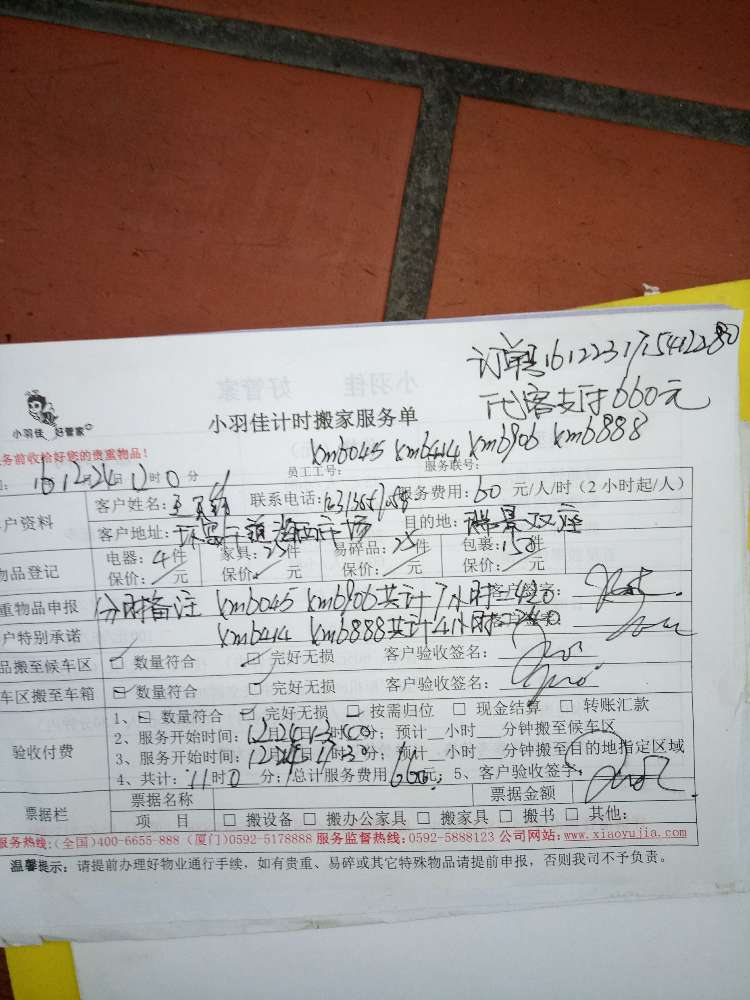 订单号161223175412280
代客支付660元
小羽佳 好管家
小羽佳计时搬家服务单
务前收拾好您的贵重物品!
km6045 km6414 km6906 km6888
员工工号: 服务联号:
16 12月24日 时0分
户资料 客户姓名: 联系电话: 服务费用:60元/人/时(2小时起/人)
客户地址: 目的地:
物品登记 电器:4件 家具:25件 易碎品:25件 包裹:150件
保价: 元 保价: 元 保价: 元 保价: 元
重物品申报 分时备注 km6045 km6906共计7小时=420 客户签字:
户特别承诺 km6414 km6888共计4小时=240
品搬至候车区 □ 数量符合 □ 完好无损 客户验收签名:
车区搬至车箱 □ 数量符合 □ 完好无损 客户验收签名:
验收付费 1、□ 数量符合 □ 完好无损 □ 按需归位 □ 现金结算 □ 转账汇款
2、服务开始时间:12月24日13时00分; 预计__小时__分钟搬至候车区
3、服务开始时间:12月24日17时30分; 预计__小时__分钟搬至目的地指定区域
4、共计:11时0分; 总计服务费用660元; 5、客户验收签字:
票据栏 票据名称 票据金额
项 目 □ 搬设备 □ 搬办公家具 □ 搬家具 □ 搬书 □ 其他:
服务热线:(全国)400-6655-888 (厦门)0592-5178888 服务监督热线:0592-5888123 公司网站:www.xiaoyujia.com
温馨提示: 请提前办理好物业通行手续, 如有贵重、易碎或其它特殊物品请提前申报, 否则我司不予负责。